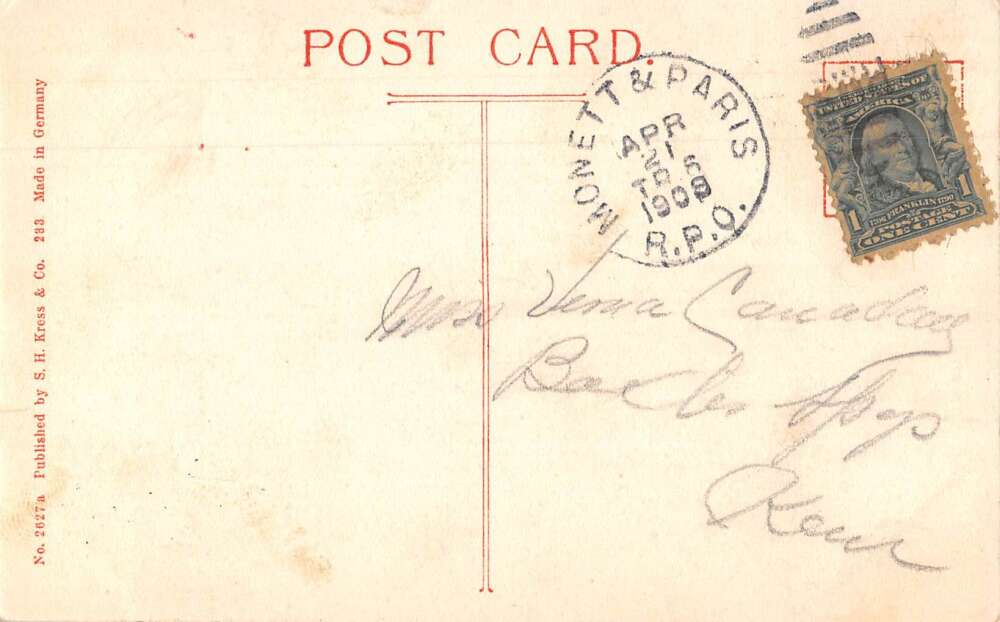 POST CARD.
MONETT & PARIS
APR
21
TR 6
1909
R.P.O.
UNITED STATES OF
AMERICA
1 1706 FRANKLIN 1790 1
POSTAGE
ONE CENT
Verna Canaday
Shop
No. 2627a Published by S. H. Kress & Co. 233 Made in Germany